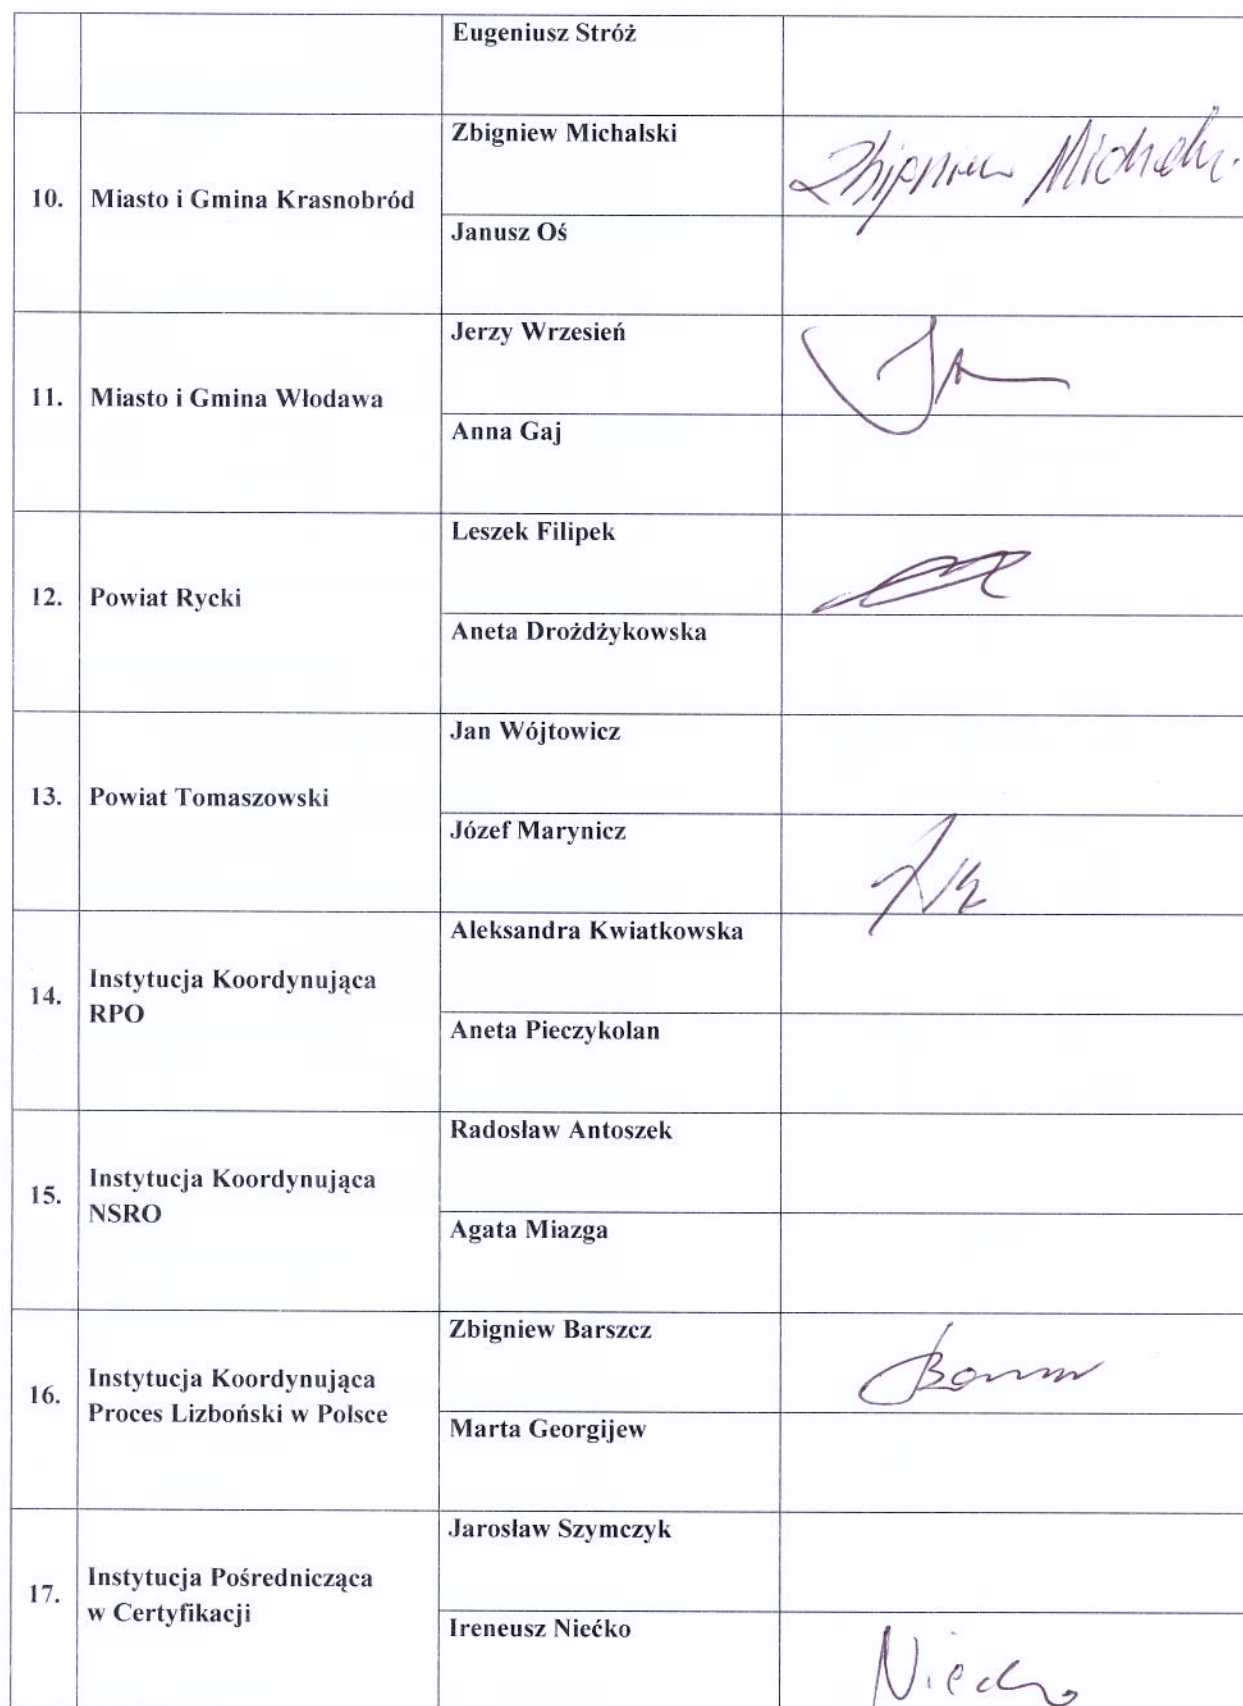 Eugeniusz Stróż
10.
Miasto i Gmina Krasnobród
Zbigniew Michalski
Zbigniew Michalski
Janusz Oś
11.
Miasto i Gmina Włodawa
Jerzy Wrzesień
Anna Gaj
12.
Powiat Rycki
Leszek Filipek
Aneta Drożdżykowska
13.
Powiat Tomaszowski
Jan Wójtowicz
Józef Marynicz
14.
Instytucja Koordynująca
RPO
Aleksandra Kwiatkowska
Aneta Pieczykolan
15.
Instytucja Koordynująca
NSRO
Radosław Antoszek
Agata Miazga
16.
Instytucja Koordynująca
Proces Lizboński w Polsce
Zbigniew Barszcz
Marta Georgijew
17.
Instytucja Pośrednicząca
w Certyfikacji
Jarosław Szymczyk
Ireneusz Niećko
Niećko